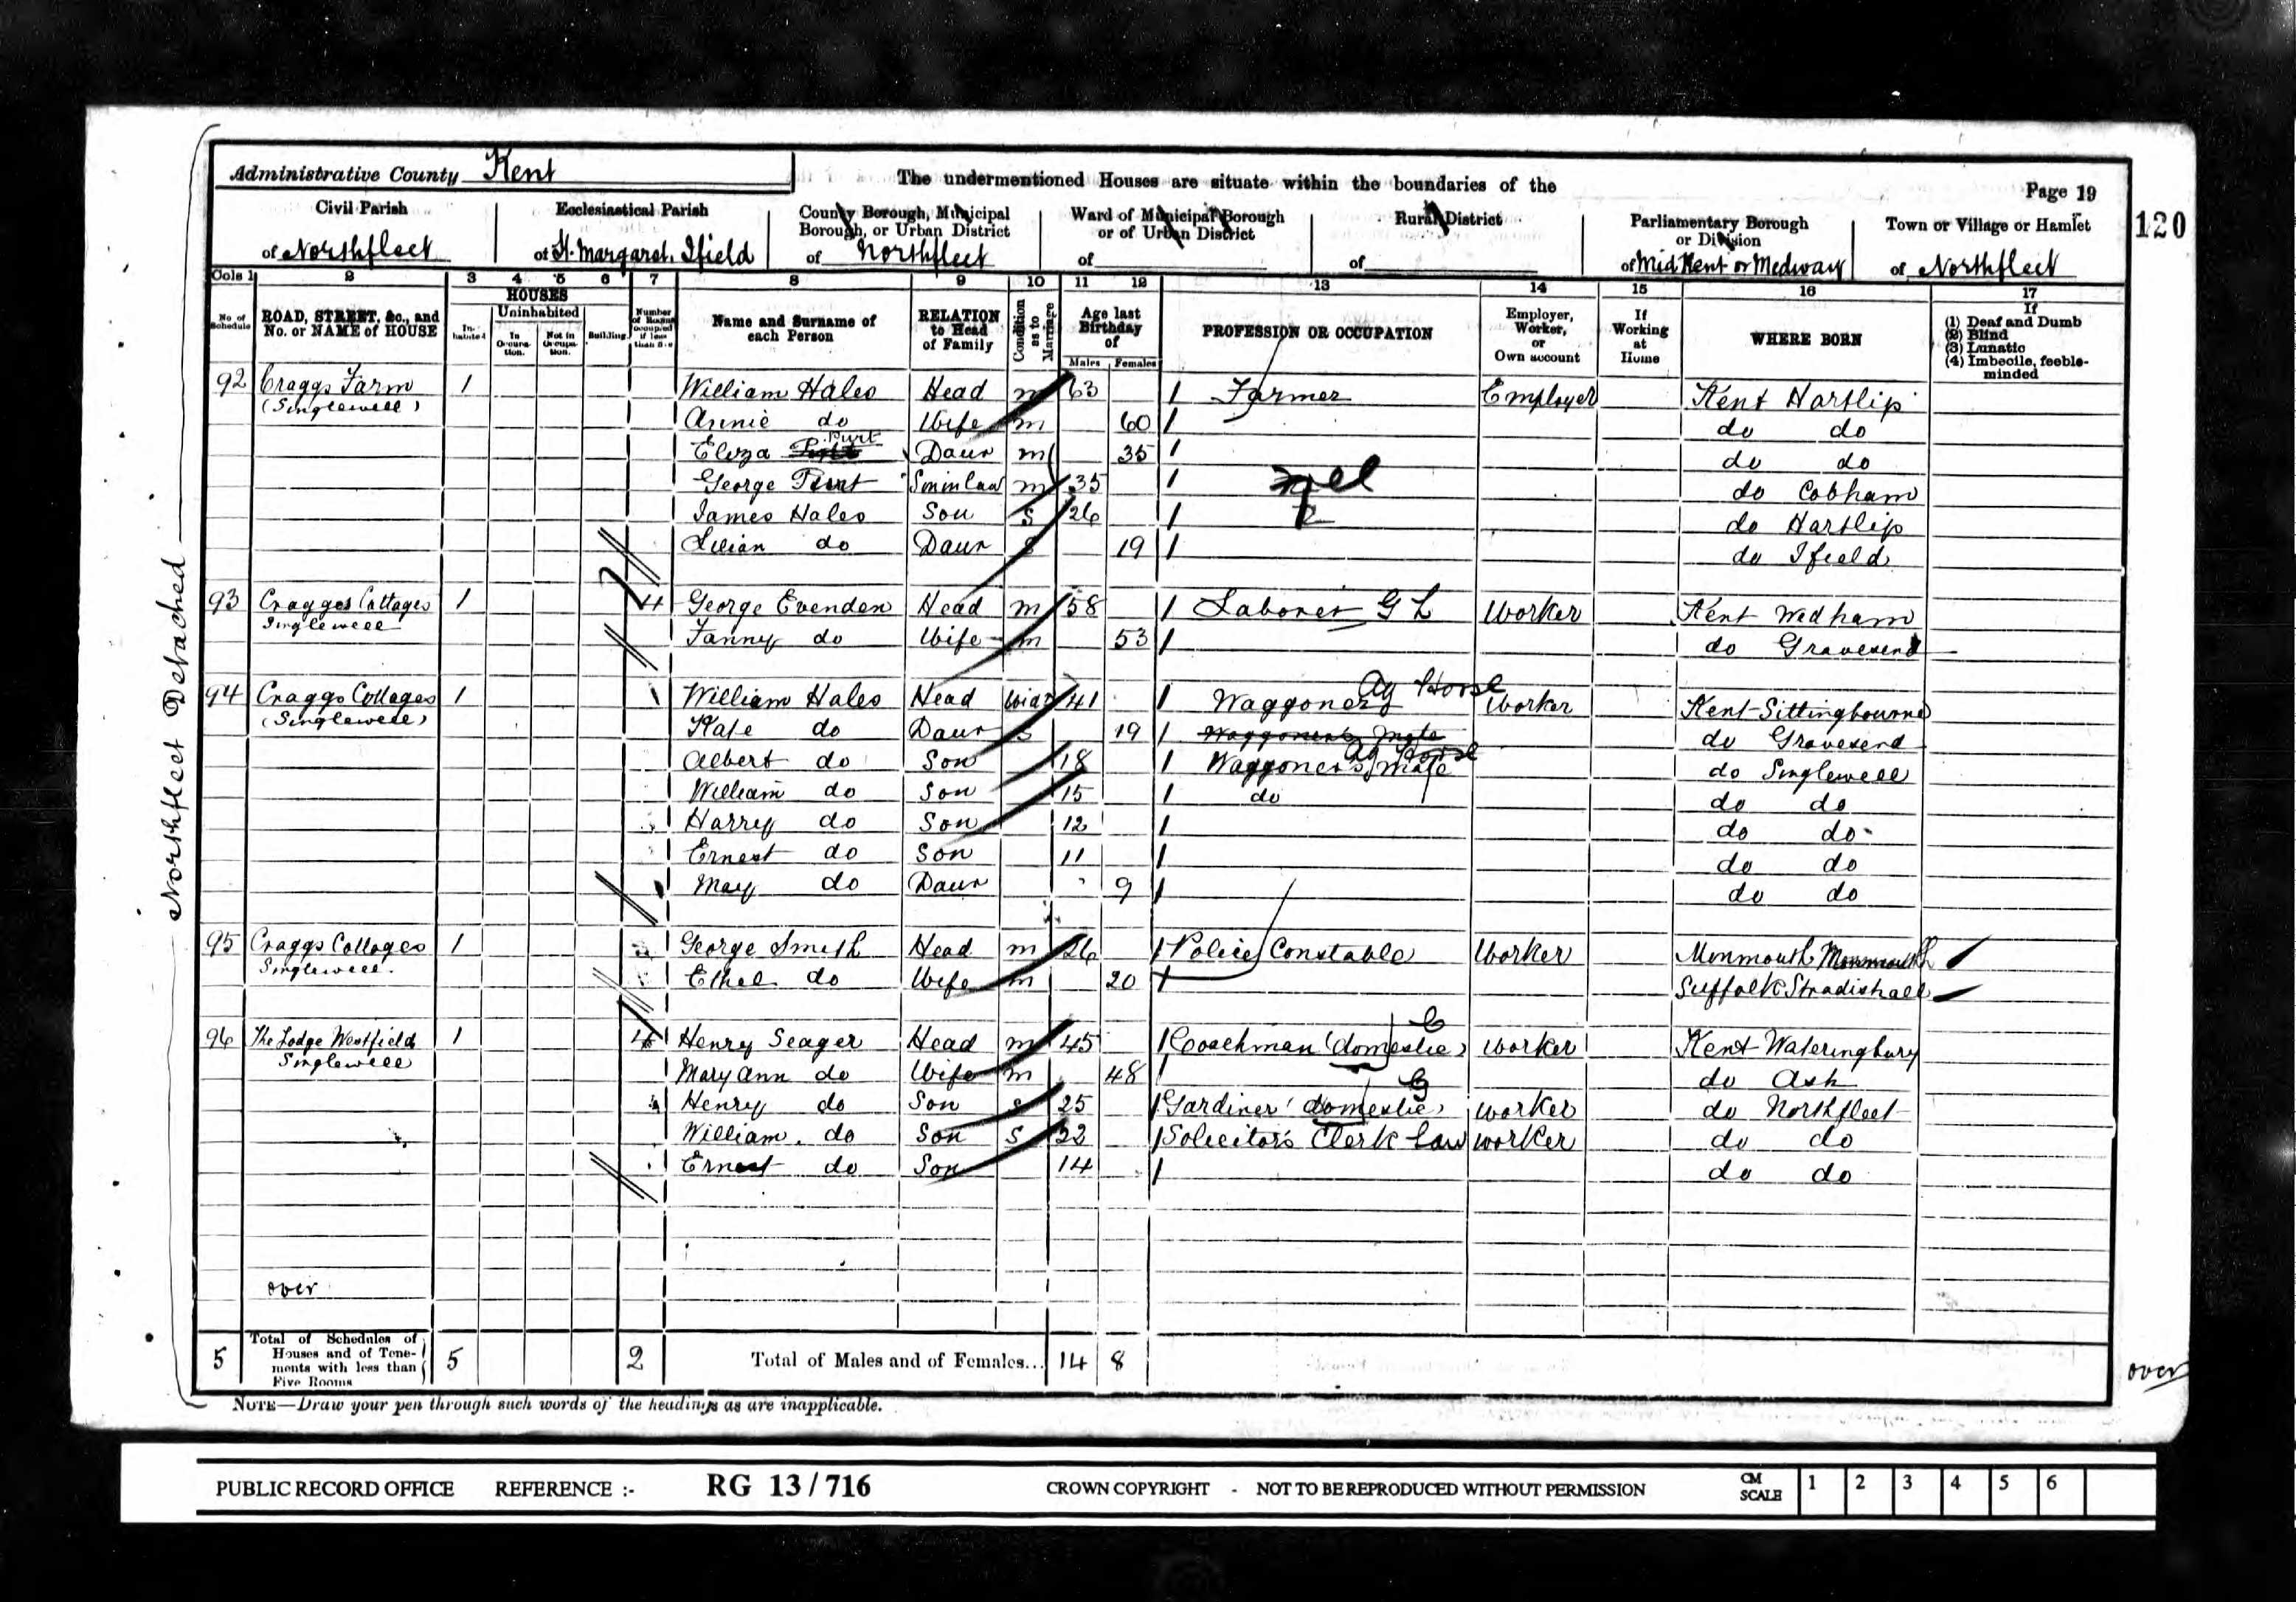 Administrative County Kent
The undermentioned Houses are situate within the boundaries of the
Page 19
120
Civil Parish
of Northfleet
Ecclesiastical Parish
of St. Margaret. Ifield
County Borough, Municipal Borough, or Urban District
of Northfleet
Ward of Municipal Borough or of Urban District
of
Rural District
of
Parliamentary Borough or Division
of Mid Kent or Medway
Town or Village or Hamlet
of Northfleet
Northfleet Detached
Cols 1 2 3 4 5 6 7 8 9 10 11 12 13 14 15 16 17
No. of Schedule
ROAD, STREET, &c., and No. or NAME of HOUSE
HOUSES
Inhabited
Uninhabited
In Occupation.
Not in Occupation.
Building
Number of Rooms occupied if less than five
Name and Surname of each Person
RELATION to Head of Family
Condition as to Marriage
Age last Birthday of
Males Females
PROFESSION OR OCCUPATION
Employer, Worker, or Own account
If Working at Home
WHERE BORN
If
(1) Deaf and Dumb
(2) Blind
(3) Lunatic
(4) Imbecile, feeble-minded
92 Craggs Farm (Singlewell) 1 William Hales Head m 63 Farmer Employer Kent Hartlip
Annie do Wife m 60 do do
Eliza Punt Daur m 35 do do
George Punt Son in law m 35 do Cobham
James Hales Son S 26 do Hartlip
Lilian do Daur S 19 do Ifield
93 Craggs Cottages Singlewell 1 4 George Evenden Head m 58 Laborer G L Worker Kent
Fanny do Wife m 53 do Gravesend
94 Craggs Cottages (Singlewell) 1 William Hales Head Widr 41 Waggoner Ag Horse Worker Kent Sittingbourne
Kate do Daur S 19 Waggoners Mate do Gravesend
Albert do Son 18 Waggoners Mate do Singlewell
William do Son 15 do do do
Harry do Son 12 do do
Ernest do Son 11 do do
May do Daur 9 do do
95 Craggs Cottages Singlewell. 1 George Smith Head m 26 Police Constable Worker Monmouth Monmouth
Ethel do Wife m 20 Suffolk Stradishall
96 The Lodge Westfield Singlewell 1 4 Henry Seager Head m 45 Coachman (domestic) Worker Kent Wateringbury
Mary Ann do Wife m 48 do Ash
Henry do Son S 25 Gardiner (domestic) Worker do Northfleet
William. do Son S 22 Solicitors Clerk Law worker do do
Ernest do Son 14 do do
over
5 Total of Schedules of Houses and of Tenements with less than Five Rooms 5 2 Total of Males and of Females... 14 8
over
NOTE—Draw your pen through such words of the headings as are inapplicable.
PUBLIC RECORD OFFICE REFERENCE :- RG 13 / 716 CROWN COPYRIGHT - NOT TO BE REPRODUCED WITHOUT PERMISSION CM SCALE 1 2 3 4 5 6